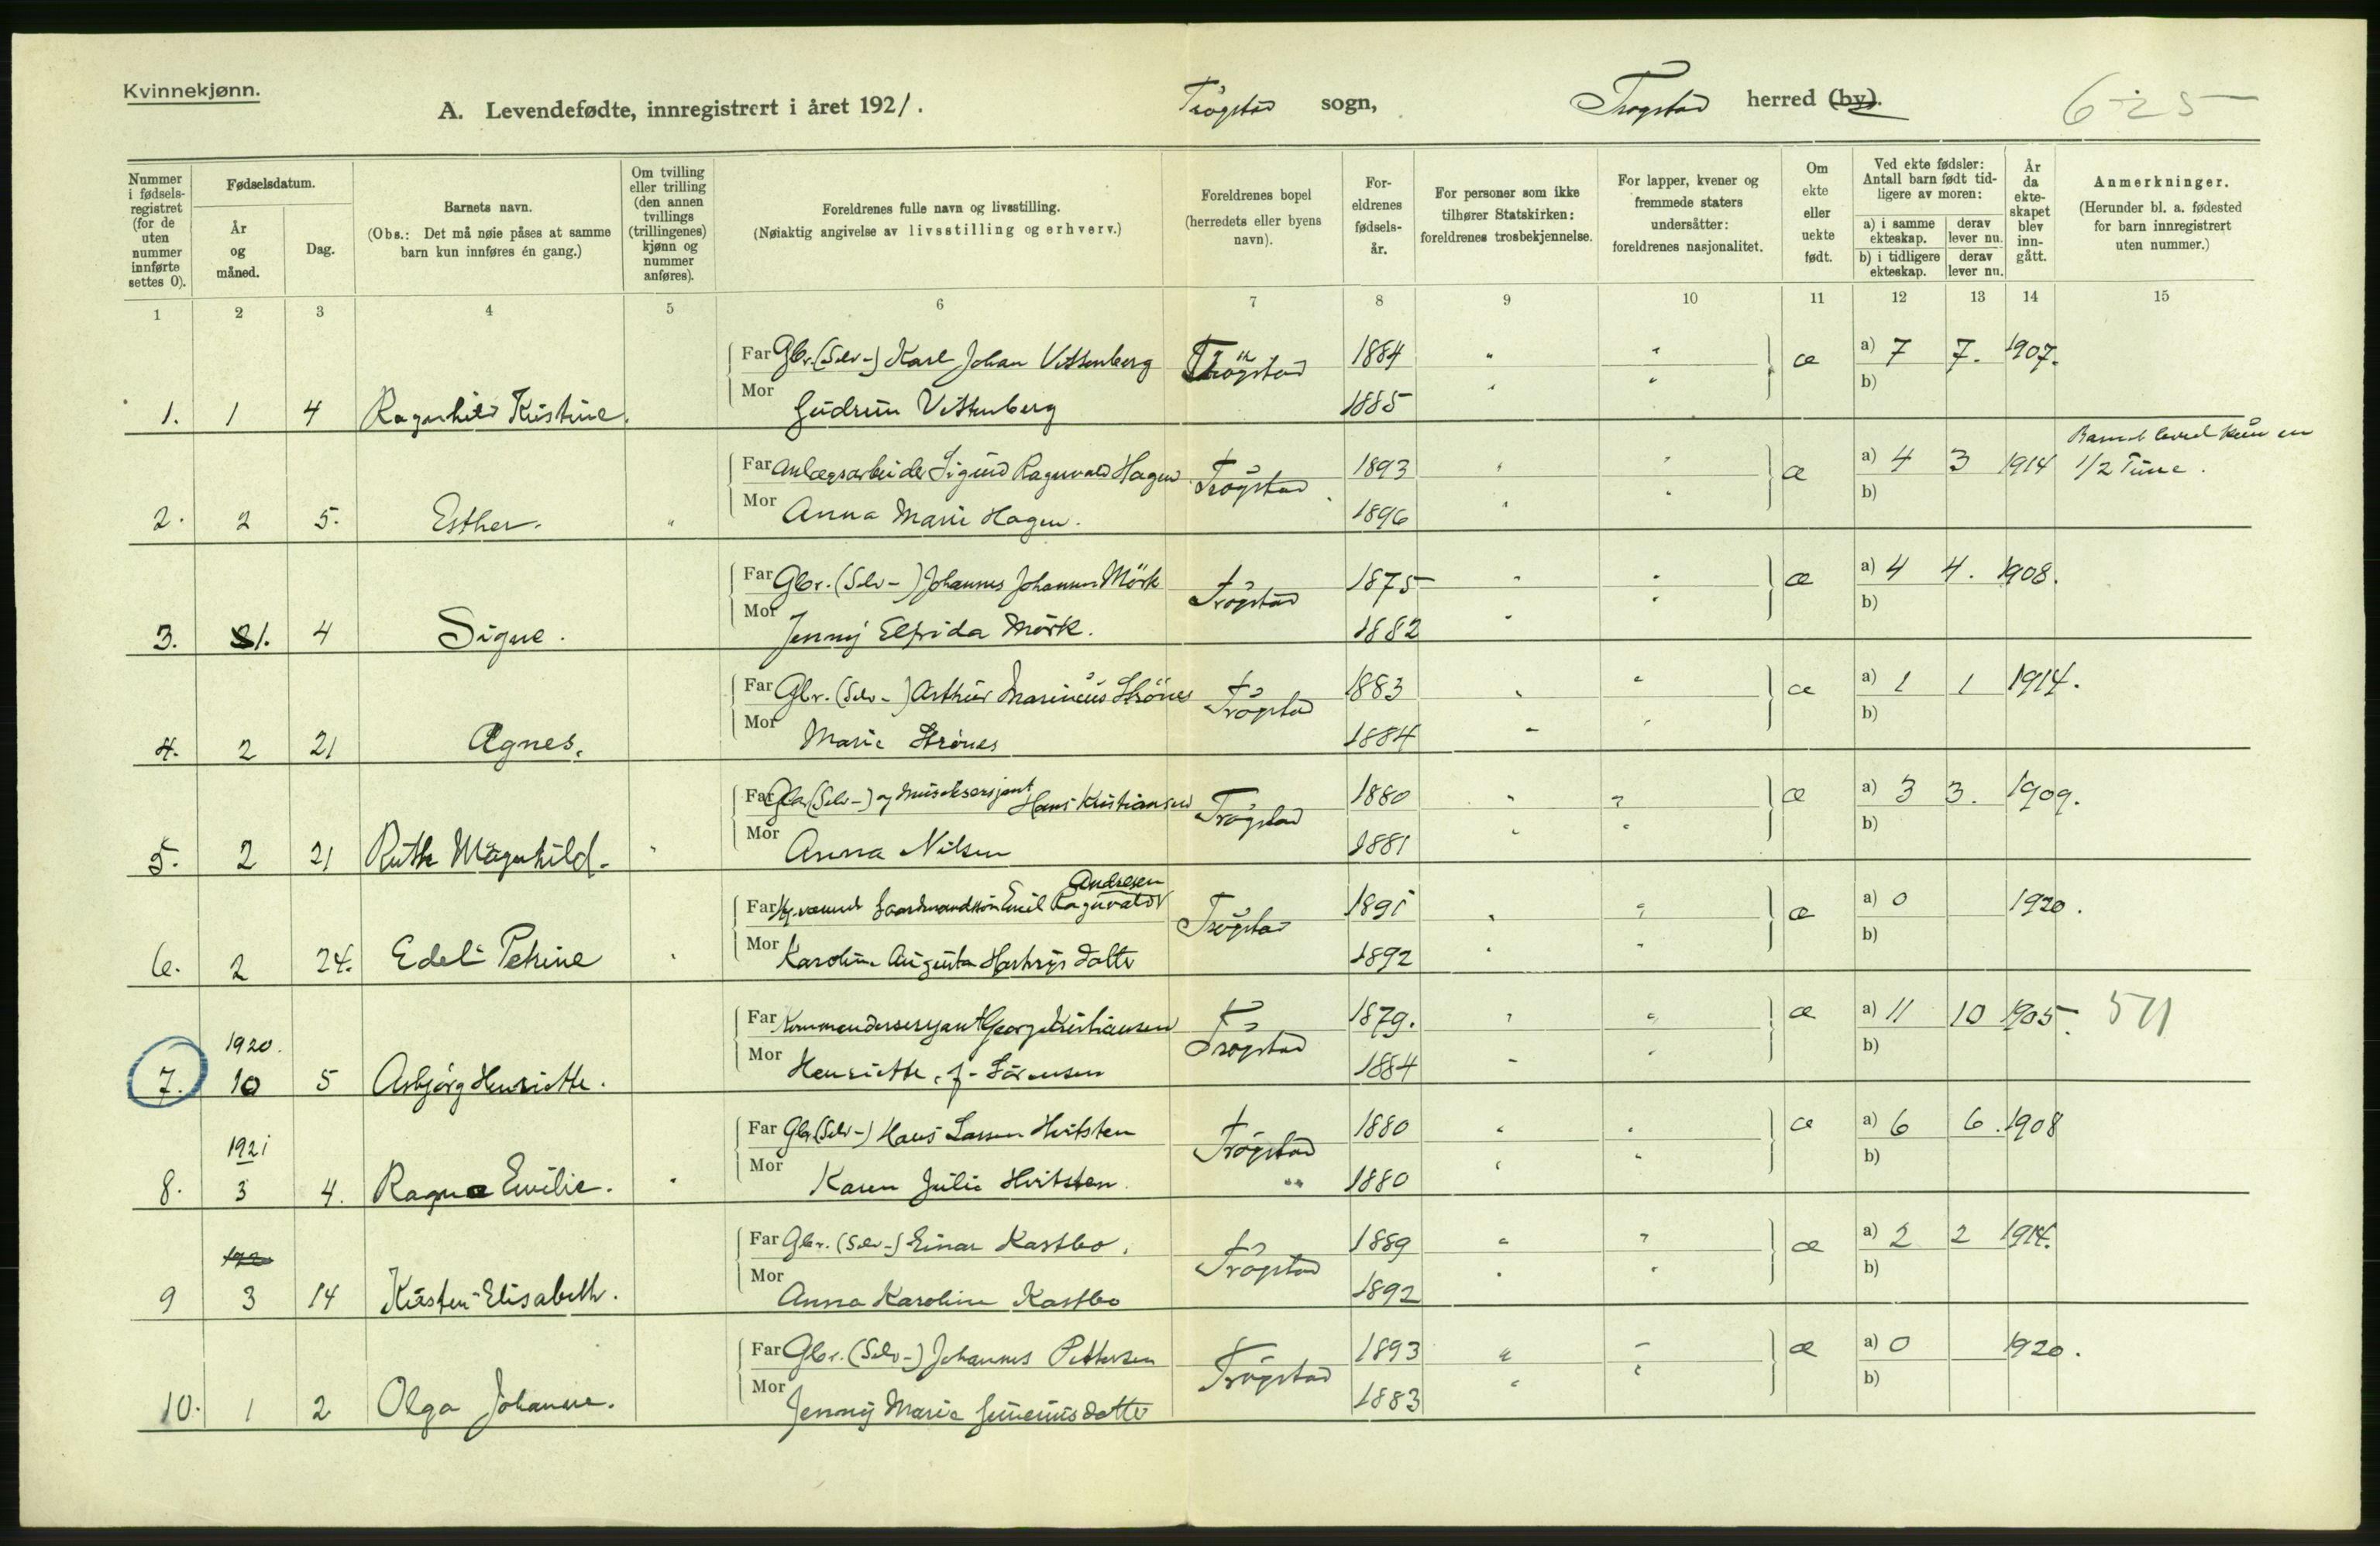 Kvinnekjønn.
A. Levendefødte, innregistrert i året 1921.
Trøgstad sogn, Trøgstad herred (by).
625
Nummer i fødsels-registret (for de uten nummer innførte settes 0).
Fødselsdatum.
År og måned.
Dag.
Barnets navn.
(Obs.: Det må nøie påses at samme barn kun innføres én gang.)
Om tvilling eller trilling (den annen tvillings (trillingenes) kjønn og nummer anføres).
Foreldrenes fulle navn og livsstilling.
(Nøiaktig angivelse av livsstilling og erhverv.)
Foreldrenes bopel (herredets eller byens navn).
For-eldrenes fødsels-år.
For personer som ikke tilhører Statskirken: foreldrenes trosbekjennelse.
For lapper, kvener og fremmede staters undersåtter: foreldrenes nasjonalitet.
Om ekte eller uekte født.
Ved ekte fødsler: Antall barn født tid-ligere av moren:
a) i samme ekteskap. derav lever nu.
b) i tidligere ekteskap. derav lever nu.
År da ekte-skapet blev inn-gått.
Anmerkninger.
(Herunder bl. a. fødested for barn innregistrert uten nummer.)
1 2 3 4 5 6 7 8 9 10 11 12 13 14 15
Far Gbr. (Selv-) Karl Johan Vittenberg Trøgstad 1884 " " æ a) 7 7. 1907.
1. 1 4 Ragnhild Kristine. Mor Gudrun Vittenberg 1885 " " b)
Far Anlægsarbeider Sigurd Ragnvald Hagen Trøgstad 1893 " " æ a) 4 3 1914 Barnet leved kun en 1/2 Time.
2. 2 5. Esther. " Mor Anna Marie Hagen. 1896 " " b)
Far Gbr. (Selv-) Johannes Johannesen Mörk Trøgstad 1875 " " æ a) 4 4. 1908.
3. 1. 4 Signe. Mor Jenny Elfrida Mörk. 1882 " " b)
Far Gbr. (Selv-) Arthur Marinius Strönes Trøgstad 1883 " " æ a) 1 1 1914.
4. 2 21 Agnes. Mor Marie Strönes 1884 " " b)
Far Gbr (Selv-) og musiksersjant Hans Kristiansen Trøgstad 1880 " " æ a) 3 3. 1909.
5. 2 21 Ruth Magnhild- " Mor Anna Nilsen 1881 " " b)
Far Gaardmandssön Emil Ragnvald Andresen Trøgstad 1891 " " æ a) 0 1920.
6. 2 24. Edel Petrine " Mor Karoline Augusta 1892 " " b)
Far Kommandersersjant Georg Kristiansen Trøgstad 1879. " " æ a) 11 10 1905. 571
7. 1920. 10 5 Asbjørg Henriette. Mor Henriette, f. Sörensen 1884 " " b)
Far Gbr (Selv-) Hans Larsen Hvitsten Trøgstad 1880 " " æ a) 6 6. 1908
8. 1921 3 4. Ragna Emilie. " Mor Karen Julie Hvitsten. " 1880 " " b)
Far Gbr. (Selv-) Einar Kastbo. Trøgstad 1889 " " æ a) 2 2 1914.
9 3 14 Kirsten-Elisabeth. Mor Anna Karoline Kastbo 1892 " " b)
Far Gbr. (Selv-) Johannes Pettersen Trøgstad 1893 " " æ a) 0 1920.
10. 1 2 Olga Johanne. Mor Jenny Marie 1883 " " b)